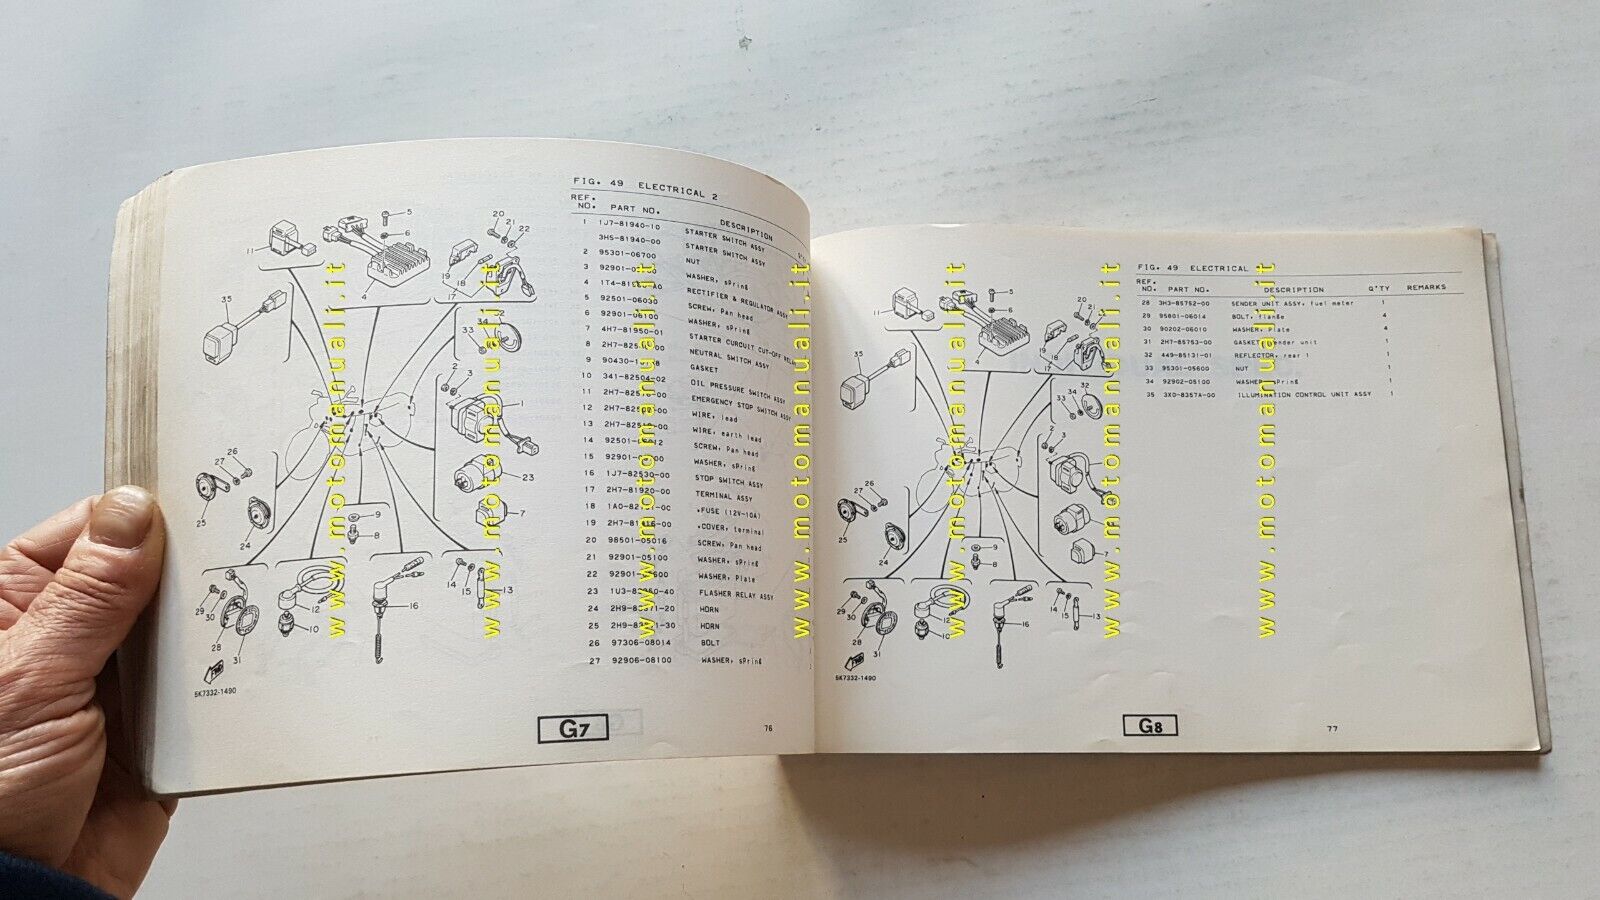 FIG. 49 ELECTRICAL 2
REF. NO. PART NO. DESCRIPTION
1 1J7-81940-10 STARTER SWITCH ASSY
3H5-81940-00 STARTER SWITCH ASSY
2 95301-06700 NUT
3 WASHER, sPring
4 RECTIFIER & REGULATOR ASSY
5 92501-06030 SCREW, Pan head
6 92901-06100 WASHER, sPring
7 4H7-81950-01 STARTER CURCUIT CUT-OFF
8 NEUTRAL SWITCH ASSY
9 GASKET
10 341-82504-02 OIL PRESSURE SWITCH ASSY
11 EMERGENCY STOP SWITCH ASSY
12 WIRE, lead
13 WIRE, earth lead
14 SCREW, Pan head
15 WASHER, sPring
16 1J7-82530-00 STOP SWITCH ASSY
17 2H7-81920-00 TERMINAL ASSY
18 .FUSE (12V-10A)
19 .COVER, terminal
20 98501-05016 SCREW, Pan head
21 92901-05100 WASHER, sPring
22 WASHER, Plate
23 FLASHER RELAY ASSY
24 HORN
25 HORN
26 97306-08014 BOLT
27 92906-08100 WASHER, sPring
5K7332-1490
G7
76
FIG. 49 ELECTRICAL
REF. NO. PART NO. DESCRIPTION Q'TY REMARKS
28 3H3-85752-00 SENDER UNIT ASSY, fuel meter 1
29 95801-06014 BOLT, flange 4
30 90202-06010 WASHER, Plate 4
31 2H7-85753-00 GASKET, sender unit 1
32 449-85131-01 REFLECTOR, rear 1 1
33 95301-05600 NUT 1
34 92902-05100 WASHER, sPring 1
35 3X0-8357A-00 ILLUMINATION CONTROL UNIT ASSY 1
5K7332-1490
G8
77
www.motomanuali.it
www.motomanuali.it
www.motomanuali.it
www.motomanuali.it
www.motomanuali.it
www.motomanuali.it
www.motomanuali.it